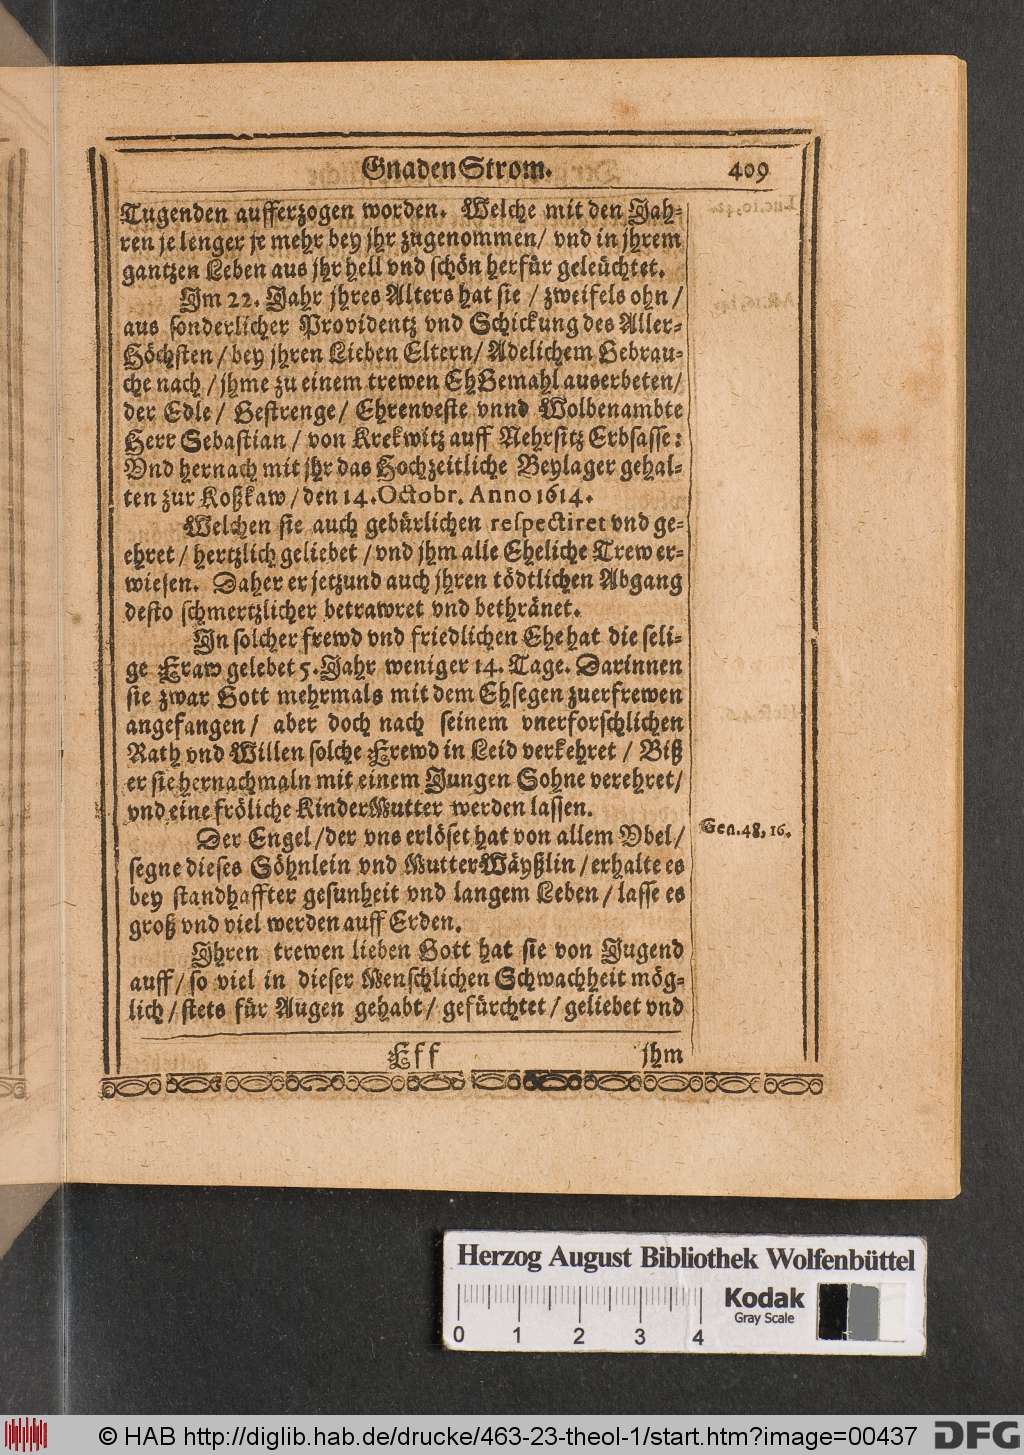 GnadenStrom. 409
Tugenden aufferzogen worden. Welche mit den Jah-
ren je lenger je mehr bey jhr zugenommen/ vnd in jhrem
gantzen Leben aus jhr hell vnd schön herfür geleüchtet.
Im 22. Jahr jhres Alters hat sie / zweifels ohn /
aus sonderlicher Providentz vnd Schickung des Aller-
Höchsten / bey jhren Lieben Eltern / Adelichem Gebrau-
che nach / jhme zu einem trewen EhGemahl auserbeten/
der Edle / Gestrenge / Ehrenveste vnnd Wolbenambte
Herr Sebastian / von Krekwitz auff Nehrsitz Erbsasse:
Vnd hernach mit jhr das Hochzeitliche Beylager gehal-
ten zur Koßkaw / den 14. Octobr. Anno 1614.
Welchen sie auch gebürlichen respectiret vnd ge-
ehret / hertzlich geliebet / vnd jhm alle Eheliche Trew er-
wiesen. Daher er jetzund auch jhren tödtlichen Abgang
desto schmertzlicher betrawret vnd bethränet.
In solcher frewd vnd friedlichen Ehe hat die seli-
ge Fraw gelebet 5. Jahr weniger 14. Tage. Darinnen
sie zwar Gott mehrmals mit dem Ehsegen zuerfrewen
angefangen / aber doch nach seinem vnerforschlichen
Rath vnd Willen solche Frewd in Leid verkehret / Biß
er sie hernachmaln mit einem Jungen Sohne verehret/
vnd eine fröliche KinderMutter werden lassen.
Der Engel / der vns erlöset hat von allem Vbel /
segne dieses Söhnlein vnd MutterWäyßlin / erhalte es
bey standhaffter gesunheit vnd langem Leben / lasse es
groß vnd viel werden auff Erden.
Gen. 48, 16.
Ihren trewen lieben Gott hat sie von Jugend
auff / so viel in dieser Menschlichen Schwachheit mög-
lich / stets für Augen gehabt / gefürchtet / geliebet vnd
Fff jhm
Herzog August Bibliothek Wolfenbüttel
0 1 2 3 4
Kodak
Gray Scale
© HAB http://diglib.hab.de/drucke/463-23-theol-1/start.htm?image=00437
DFG